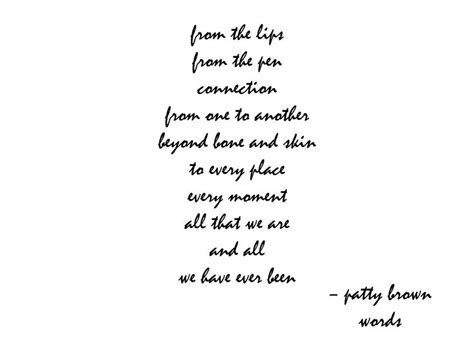 from the lips
from the pen
connection
from one to another
beyond bone and skin
to every place
every moment
all that we are
and all
we have ever been
– patty brown
words